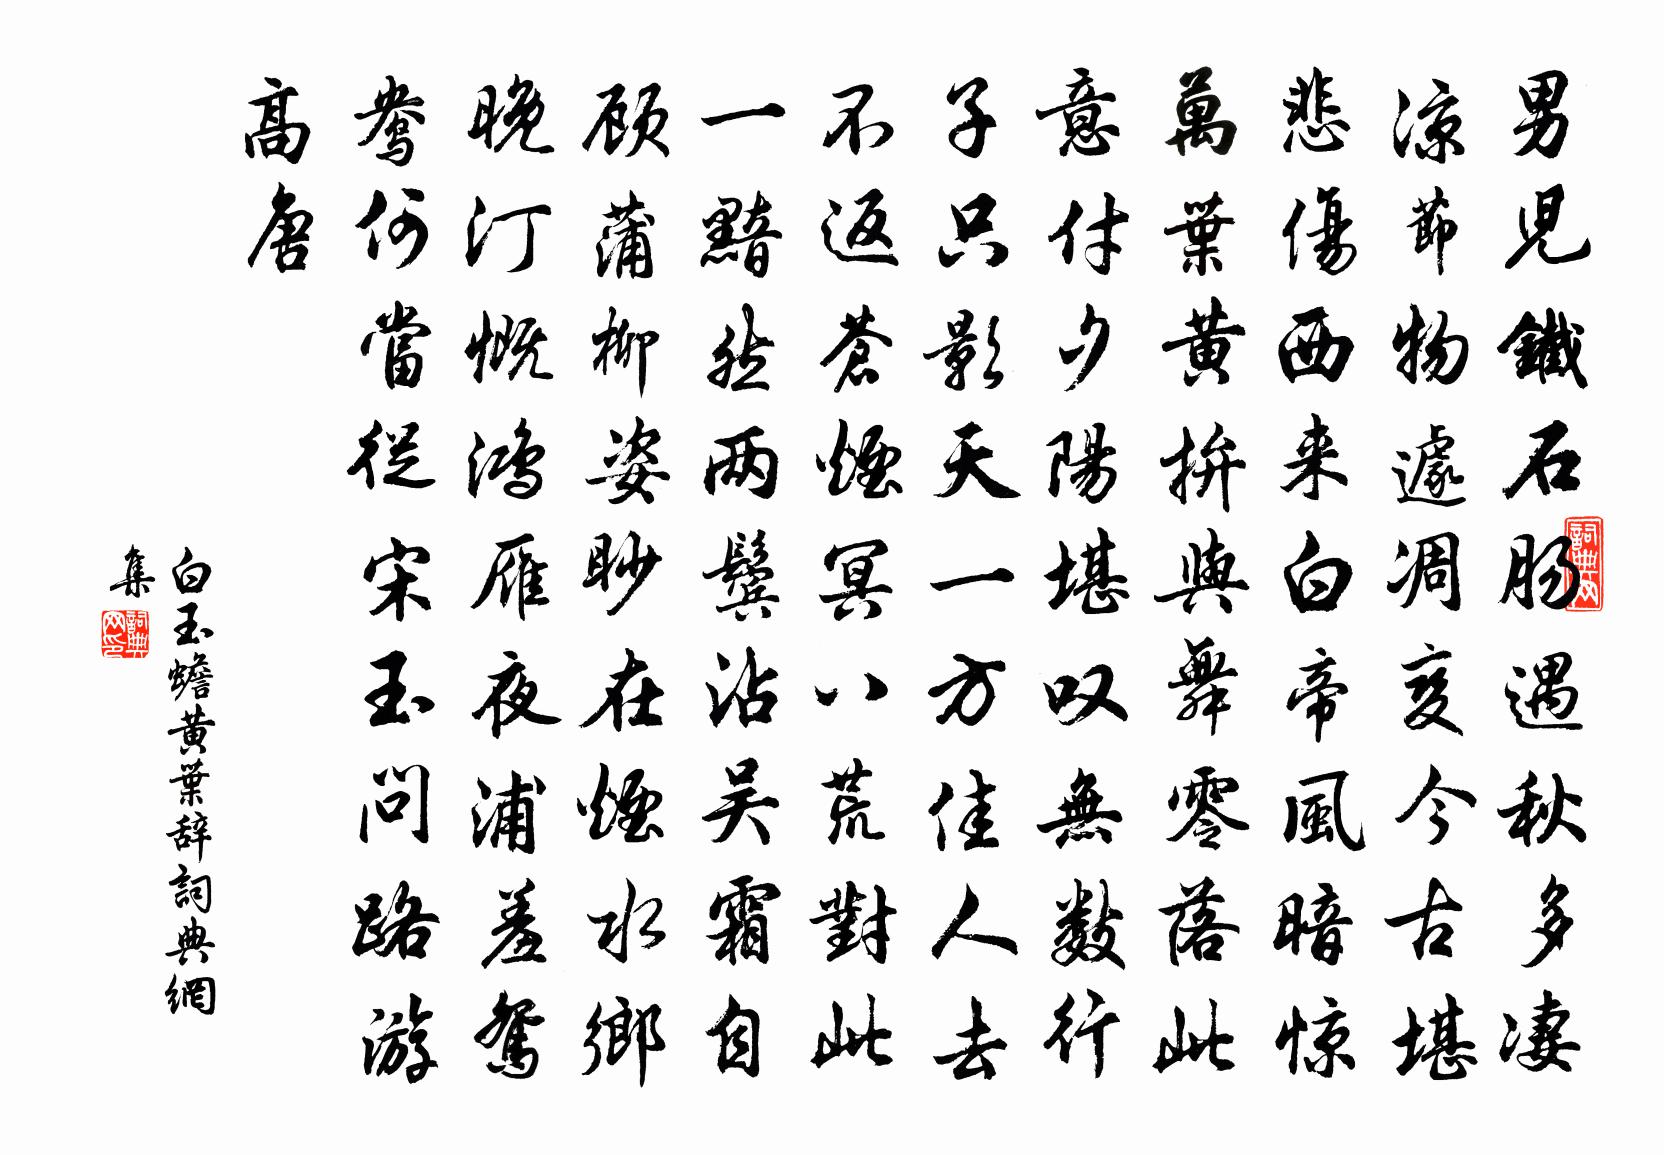 男兒鐵石腸遇秋多淒
涼節物遽凋变今古堪
悲傷西来白帝風暗惊
萬葉黄拚與舞零落此
意付夕陽堪叹無数行
子只影天一方佳人去
不返蒼煙冥八荒對此
一黯然两鬓沾吴霜自
顾蒲柳姿眇在煙水鄉
晚汀慨鸿雁夜浦羞鴛
鴦何當從宋玉问路游
高唐
白玉蟾黄葉辞詞典網
集
詞典网
詞典网印